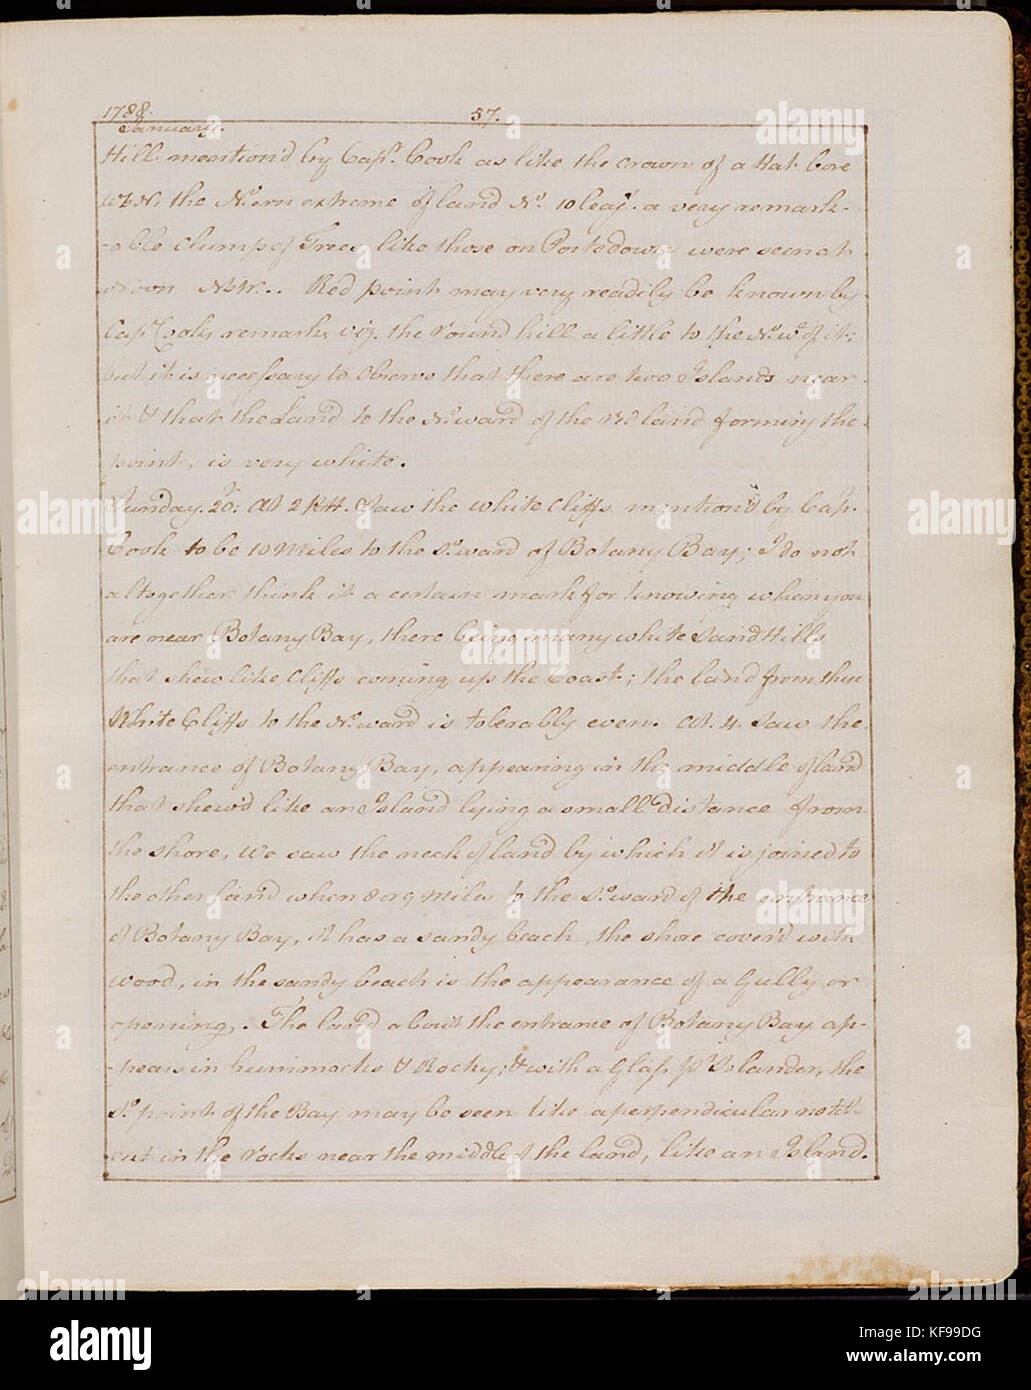 1788.
57.
January.
Hill mention'd by Capt. Cook as like the crown of a Hat bore
WbN. the No.ern extreme of land No. 10 leags. a very remark-
-able Clump of Trees like those on Portsdown were seen at
Noon NbW.. Red point may very readily be known by
Capt. Cook's remarks, viz. the round hill a little to the No.wd. of it;
but it is necessary to Observe that there are two Islands near
it & that the Land to the No.ward of the land forming the
point, is very white.
Sunday 20. At 2 PM. Saw the white Cliffs mention'd by Capt.
Cook to be 10 Miles to the So.ward of Botany Bay; I do not
altogether think it a certain mark for knowing when you
are near Botany Bay, there being many white Sand Hills
that shew like Cliffs coming up the Coast; the land from these
White Cliffs to the No.ward is tolerably even. At 4. Saw the
entrance of Botany Bay, appearing in the middle of land
that shew'd like an Island lying a small distance from
the shore, we saw the neck of land by which it is joined to
the other land when 8 or 9 Miles to the So.ward of the entrance
of Botany Bay, it has a sandy beach, the shore cover'd with
wood, in the sandy beach is the appearance of a Gully or
opening,. The land about the entrance of Botany Bay ap-
-pears in hummocks & Rocky; & with a Glass the
So. point of the Bay may be seen like a perpendicular notch
cut in the rocks near the middle of the land, like an Island.
alamy
Image ID: KF99DG
www.alamy.com